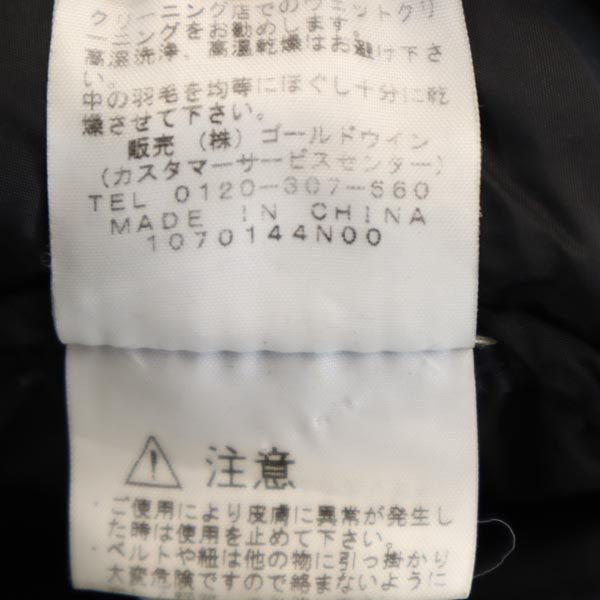 クリーニング店でのウェットクリ
ーニングをお勧めします。
高温洗浄、高温乾燥はお避け下さ
い。
中の羽毛を均等にほぐし十分に乾
燥させて下さい。
販売 (株) ゴールドウイン
(カスタマーサービスセンター)
TEL 0120-307-560
MADE IN CHINA
1070144N00
注意
ご使用により皮膚に異常が発生し
た時は使用を止めて下さい。
ベルトや紐は他の物に引っ掛かり
大変危険ですので絡まないように